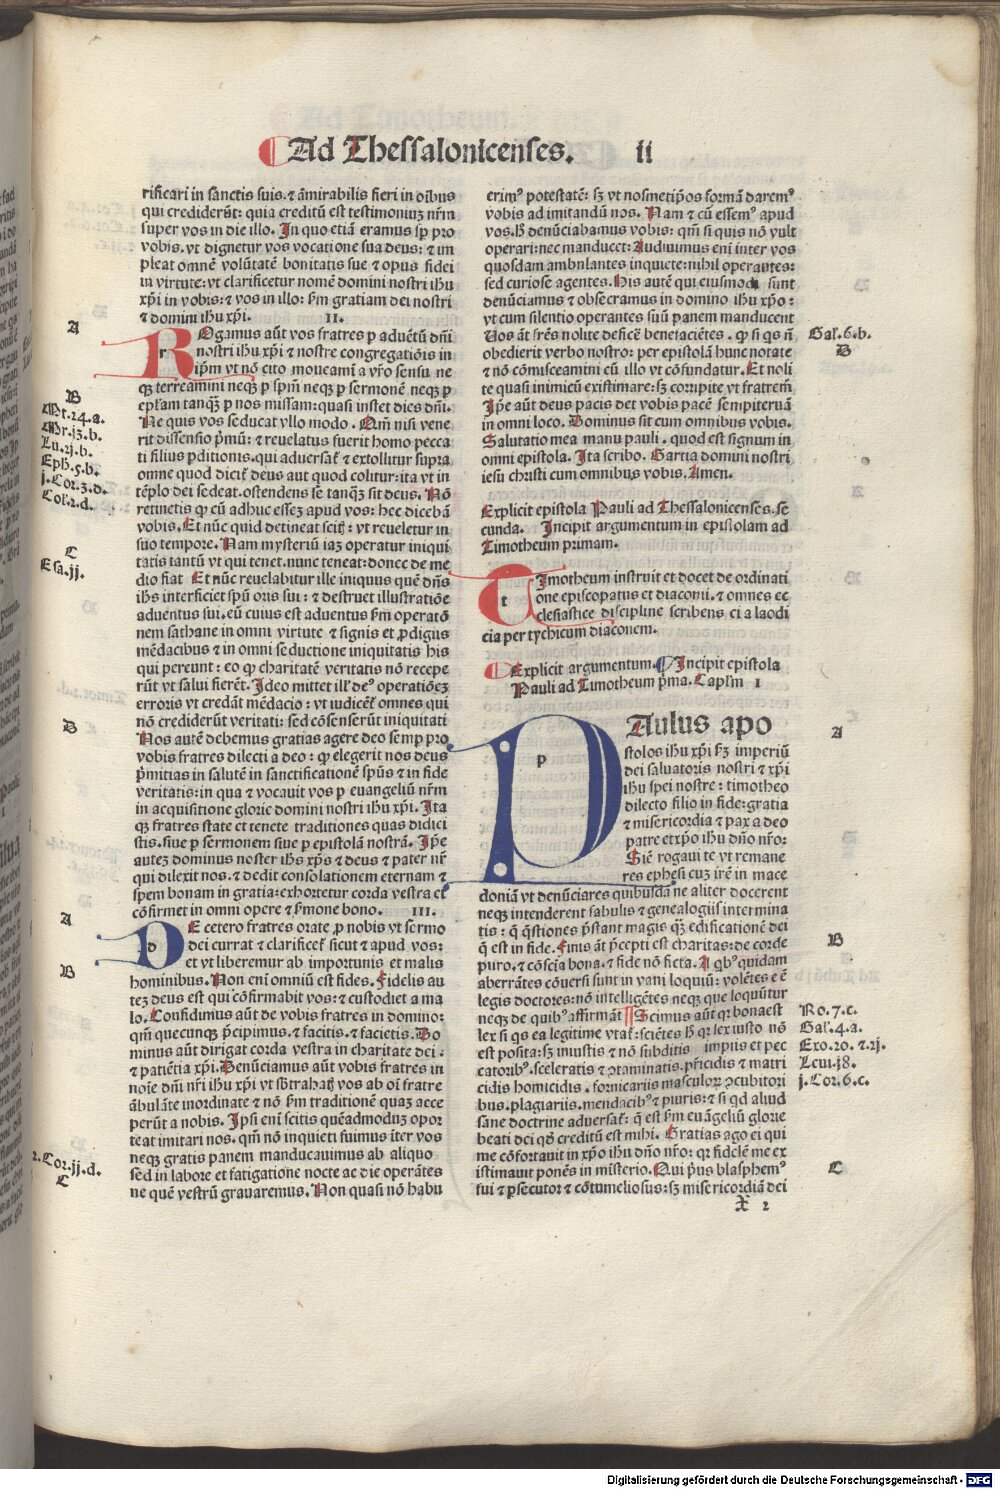 Ad Thessalonicenses. ii
rificari in sanctis suis. ⁊ ām̄irabilis fieri in oībus
qui crediderūt: quia creditū est testimoniuʒ nr̄m
super vos in die illo. In quo etiā eramus sp̄ pro
vobis. vt dignetur vos vocatione sua deus: ⁊ im
pleat omnē volūtatē bonitatis sue ⁊ opus fidei
in virtute: vt clarificetur nomē domini nostri ihu
xp̄i in vobis: ⁊ vos in illo: s̄m gratiam dei nostri
⁊ domini ihu xp̄i. II.
A
ROgamus aūt vos fratres p aduētū dn̄i
nostri ihu xp̄i ⁊ nostre congregatiōis in
ip̄m vt nō cito moueami a vr̄o sensu ne
qꝫ terreamini neqꝫ p sp̄m neqꝫ p sermonē neqꝫ p
B
epl̄am tanqꝫ p nos missam: quasi instet dies dn̄i.
Mt.24.a.
Ne quis vos seducat vllo modo. Qm̄ nisi vene
Mr.13.b.
rit dissensio p̄mū: ⁊ reuelatus fuerit homo pecca
Lu.21.b.
ti filius pditionis. qui aduersat̄ ⁊ extollitur supra
Eph.5.b.
omne quod dicit̄ deus aut quod colitur: ita vt in
j.Cor.3.d.
tēplo dei sedeat. ostendens se tanqꝫ sit deus. Nō
Col.2.d.
retinetis ꝙ cū adhuc essez apud vos: hec dicebā
vobis. Et nūc quid detineat scitꝭ: vt reueletur in
suo tempore. Nam mysteriū iaʒ operatur iniqui
C
tatis tantū vt qui tenet. nunc teneat: donec de me
Esa.jj.
dio fiat Et nūc reuelabitur ille iniquus quē dn̄s
ihs interficiet sp̄u oris sui: ⁊ destruet illustratiōe
aduentus sui. eū cuius est aduentus s̄m operatō
nem sathane in omni virtute ⁊ signis et ꝓdigijs
mēdacibus ⁊ in omni seductione iniquitatis his
qui pereunt: eo ꝙ charitatē veritatis nō recepe
rūt vt salui fierēt. Ideo mittet ill̄ de⁹ operatiōeʒ
erroris vt credāt mēdacio: vt iudicēt̄ omnes qui
nō crediderūt veritati: sed cōsenserūt iniquitati
D
Nos autē debemus gratias agere deo semp pro
vobis fratres dilecti a deo: ꝙ elegerit nos deus
p̄mitias in salutē in sanctificationē sp̄us ⁊ in fide
veritatis: in qua ⁊ vocauit vos p euangeliū nr̄m
in acquisitione glorie domini nostri ihu xp̄i. Ita
qꝫ fratres state et tenete traditiones quas didici
stis. siue p sermonem siue p epistolā nostrā. Ip̄e
auteʒ dominus noster ihs xp̄s ⁊ deus ⁊ pater nr̄
qui dilexit nos. ⁊ dedit consolationem eternam ⁊
spem bonam in gratia: exhortetur corda vestra et
cōfirmet in omni opere ⁊ s̄mone bono. III.
A
DE cetero fratres orate ꝓ nobis vt sermo
dei currat ⁊ clarificet̄ sicut ⁊ apud vos:
et vt liberemur ab importunis et malis
B
hominibus. Non enī omniū est fides. Fidelis au
teʒ deus est qui cōfirmabit vos: ⁊ custodiet a ma
lo. Confidimus aūt de vobis fratres in domino:
qm̄ quecunqꝫ p̄cipimus. ⁊ facitis. ⁊ facietis. Do
minus aūt dirigat corda vestra in charitate dei:
⁊ patiētia xp̄i. Denūciamus aūt vobis fratres in
noīe dn̄i nr̄i ihu xp̄i vt sb̄trahatꝭ vos ab oī fratre
ābulāte inordinate ⁊ nō s̄m traditionē quaʒ acce
perūt a nobis. Ipsi enī scitis quēadmoduʒ opor
teat imitari nos. qm̄ nō inquieti fuimus iter vos
neqꝫ gratis panem manducauimus ab aliquo
2.Cor.jj.d.
sed in labore et fatigatione nocte ac die operātes
C
ne quē vestrū grauaremus. Non quasi nō habu
erim⁹ potestatē: sꝫ vt nosmetip̄os formā darem⁹
vobis ad imitandū nos. Nam ⁊ cū essem⁹ apud
vos. h̄ denūciabamus vobis: qm̄ si quis nō vult
operari: nec manducet: Audiuimus enī inter vos
quosdam ambulantes inquiete: nihil operantes:
sed curiose agentes. His autē qui eiusmodi sunt
denūciamus ⁊ obsecramus in domino ihu xp̄o:
vt cum silentio operantes suū panem manducent
Gal̄.6.b.
Uos āt fr̄es nolite deficē benefaciētes. ꝙ si qs nō
D
obedierit verbo nostro: per epistolā hunc notate
⁊ nō cōmisceamini cū illo vt cōfundatur. Et noli
te quasi inimicū existimare: sꝫ corripite vt fratrem
Ip̄e aūt deus pacis det vobis pacē sempiternā
in omni loco. Dominus sit cum omnibus vobis.
Salutatio mea manu pauli. quod est signum in
omni epistola. Ita scribo. Gartia domini nostri
iesu christi cum omnibus vobis. Amen.
Explicit epistola Pauli ad Thessalonicenses. se
cunda. Incipit argumentum in epistolam ad
Timotheum primam.
TImotheum instruit et docet de ordinati
one episcopatus et diaconii. ⁊ omnes ec
clesiastice discipline scribens ei a laodi
cia per tychicum diaconem.
Explicit argumentum. Incipit epistola
Pauli ad Timotheum p̄ma. Capl̄m I
A
PAulus apo
stolos ihu xp̄i s̄ʒ imperiū
dei saluatoris nostri ⁊ xp̄i
ihu spei nostre: timotheo
dilecto filio in fide: gratia
⁊ misericordia ⁊ pax a deo
patre et xp̄o ihu dn̄o nr̄o:
Sic̄ rogaui te vt remane
res ephesi cuʒ irē in mace
doniā vt denūciares quibusdā ne aliter docerent
neqꝫ intenderent fabulis ⁊ genealogijs intermina
tis: q̄ q̄stiones p̄stant magis qꝫ edificationē dei
B
q̄ est in fide. Finis āt p̄cepti est charitas: de corde
puro. ⁊ cōscia bona. ⁊ fide nō ficta. A qb⁹ quidam
aberrātes cōuersi sunt in vani loquiū: volētes eē
legis doctores: nō intelligētes neqꝫ que loquūtur
Ro.7.c.
neqꝫ de quib⁹ affirmāt Scimus aūt qꝛ bona est
Gal̄.4.a.
lex si qs ea legitime vtat̄: sciētes h̄ qꝛ lex iusto nō
Exo.20.⁊.21.
est posita: sꝫ iniustis ⁊ nō subditis impiis et pec
Leui.18.
catorib⁹. sceleratis ⁊ ꝯtaminatis. pr̄icidis ⁊ matri
j.Cor.6.c.
cidis homicidis. fornicariis masculoꝝ ꝯcubitori
bus. plagiariis. mendacib⁹ ⁊ piuris: ⁊ si qd aliud
sane doctrine aduersat̄: q̄ est s̄m euāgeliū glorie
beati dei qd̄ creditū est mihi. Gratias ago ei qui
me cōfortauit in xp̄o ihu dn̄o nr̄o: qꝛ fidelē me ex
C
istimauit ponēs in misterio. Qui p̄us blasphem⁹
fui ⁊ ꝑsecutor ⁊ cōtumeliosus: sꝫ misericordiā dei
X 2
Digitalisierung gefördert durch die Deutsche Forschungsgemeinschaft - DFG